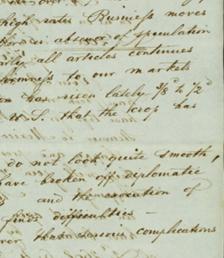 high rates Business moves
absence of speculation
all articles continues
to our markets
has risen lately 1/8 d to 1/2 d
that the crop has
do not look quite smooth,
have broken off diplomatic
and the execution of
finds difficulties -
than serious complications